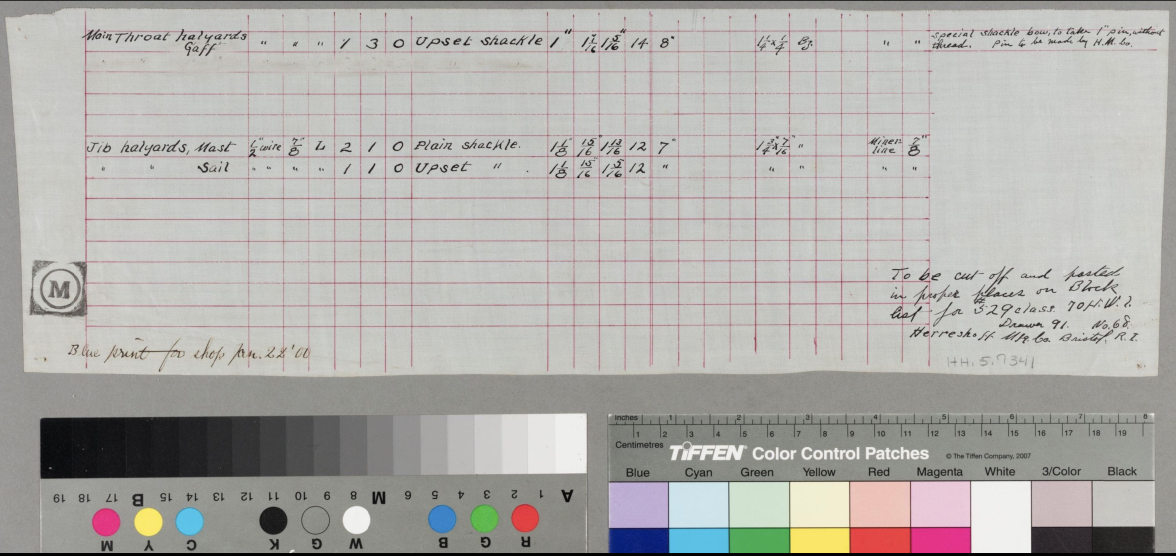 Main Throat halyards Gaff " " " 1 3 0 Upset shackle 1" 1 1/16 1 5/16" 14 8" 1 1/4 x 1/4 Bz. " " special shackle bow, to take 1" pin, without
thread. Pin to be made by H.M. Co.
Jib halyards, Mast 1/2" wire 7/8" L 2 1 0 Plain shackle. 1 1/8" 15/16" 1 13/16" 12 7" 1 3/4" x 7/16" " Miner line 7/8"
" " Sail " " " " 1 1 0 Upset " . 1 1/8 15/16 1 5/16 12 " " " " "
M
To be cut off and pasted
in proper places on Block
list for #529 class 70 H.W.L.
Drawer 91. No. 68.
Herreshoff Mfg. Co. Bristol, R.I.
Blue print for shop Jan. 22 '00
HH.5.7341
Inches 1 2 3 4 5 6 7 8
Centimetres 1 2 3 4 5 6 7 8 9 10 11 12 13 14 15 16 17 18 19
TIFFEN Color Control Patches © The Tiffen Company, 2007
Blue Cyan Green Yellow Red Magenta White 3/Color Black
A 1 2 3 4 5 6 M 8 9 10 11 12 13 14 15 B 17 18 19
R G B W G K C Y M